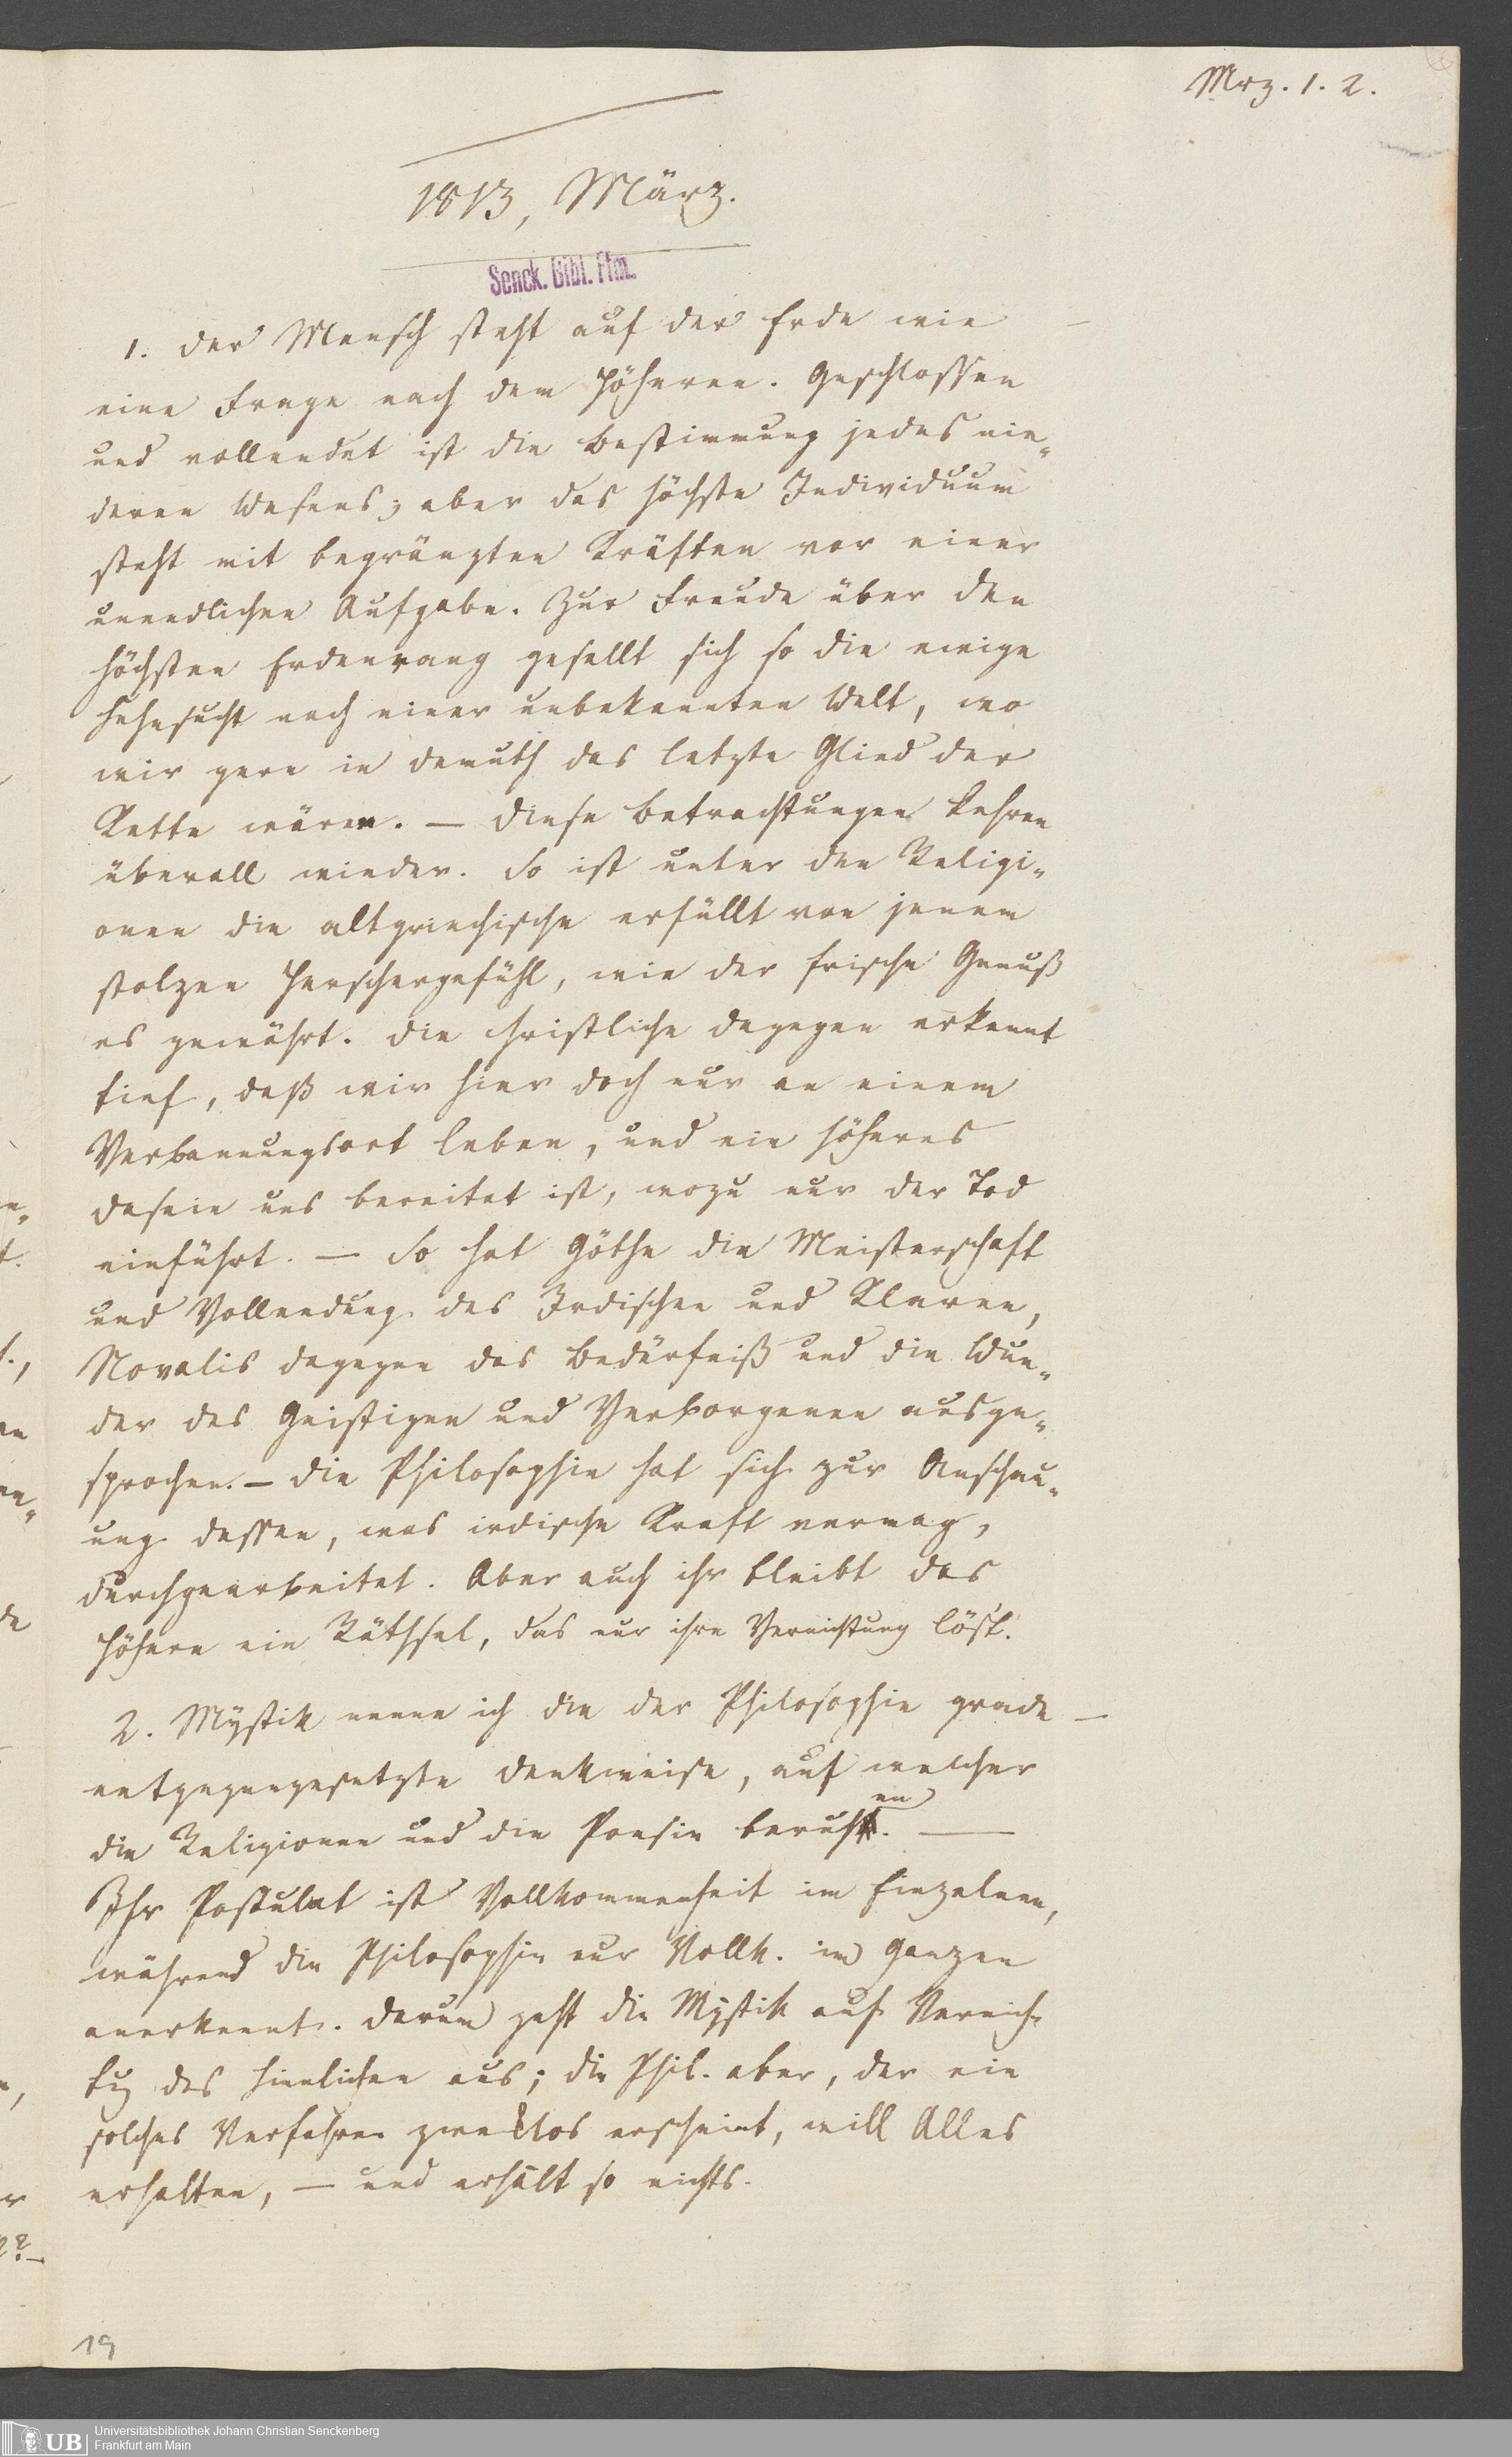 Mrz. 1. 2.
1813, März.
Senck. Bibl. Ffm.
1. Der Mensch steht auf der Erde wie —
eine Frage nach dem Höheren. Geschlossen
und vollendet ist die Bestimmung jedes nie-
deren Wesens; aber das höchste Individuum
steht mit begränzten Kräften vor einer
unendlichen Aufgabe. Zur Freude über den
höchsten Erdenrang gesellt sich so die ewige
Sehnsucht nach einer unbekannten Welt, wo
wir gern in Demuth das letzte Glied der
Kette wären. — Diese Betrachtungen kehren
überall wieder. So ist unter den Religi-
onen die altgriechische erfüllt von jenem
stolzen Herschergefühl, wie der frische Genuß
es gewährt. Die christliche dagegen erkennt
tief, daß wir hier doch nur an einem
Verbannungsort leben, und ein höheres
Dasein uns bereitet ist, wozu nur der Tod
einführt. — So hat Göthe die Meisterschaft
und Vollendung des Irdischen und Klaren,
Novalis dagegen das Bedürfniß und die Wun-
der des Geistigen und Verborgenen ausge-
sprochen. — Die Philosophie hat sich zur Anschau-
ung dessen, was irdische Kraft vermag,
durchgearbeitet. Aber auch ihr bleibt das
Höhere ein Räthsel, das nur ihre Vernichtung löst.
2. Mystik nenne ich die der Philosophie grade —
entgegengesetzte Denkweise, auf welcher
die Religionen und die Poesie beruhen. —
Ihr Postulat ist Vollkommenheit im Einzelnen,
während die Philosophie nur Vollk. im Ganzen
anerkennt. Darum geht die Mystik auf Vernich-
tg des Sinnlichen aus; die Phil. aber, der ein
solches Verfahren zwecklos erscheint, will Alles
erhalten, — und erhält so nichts.
19
UB
Universitätsbibliothek Johann Christian Senckenberg
Frankfurt am Main